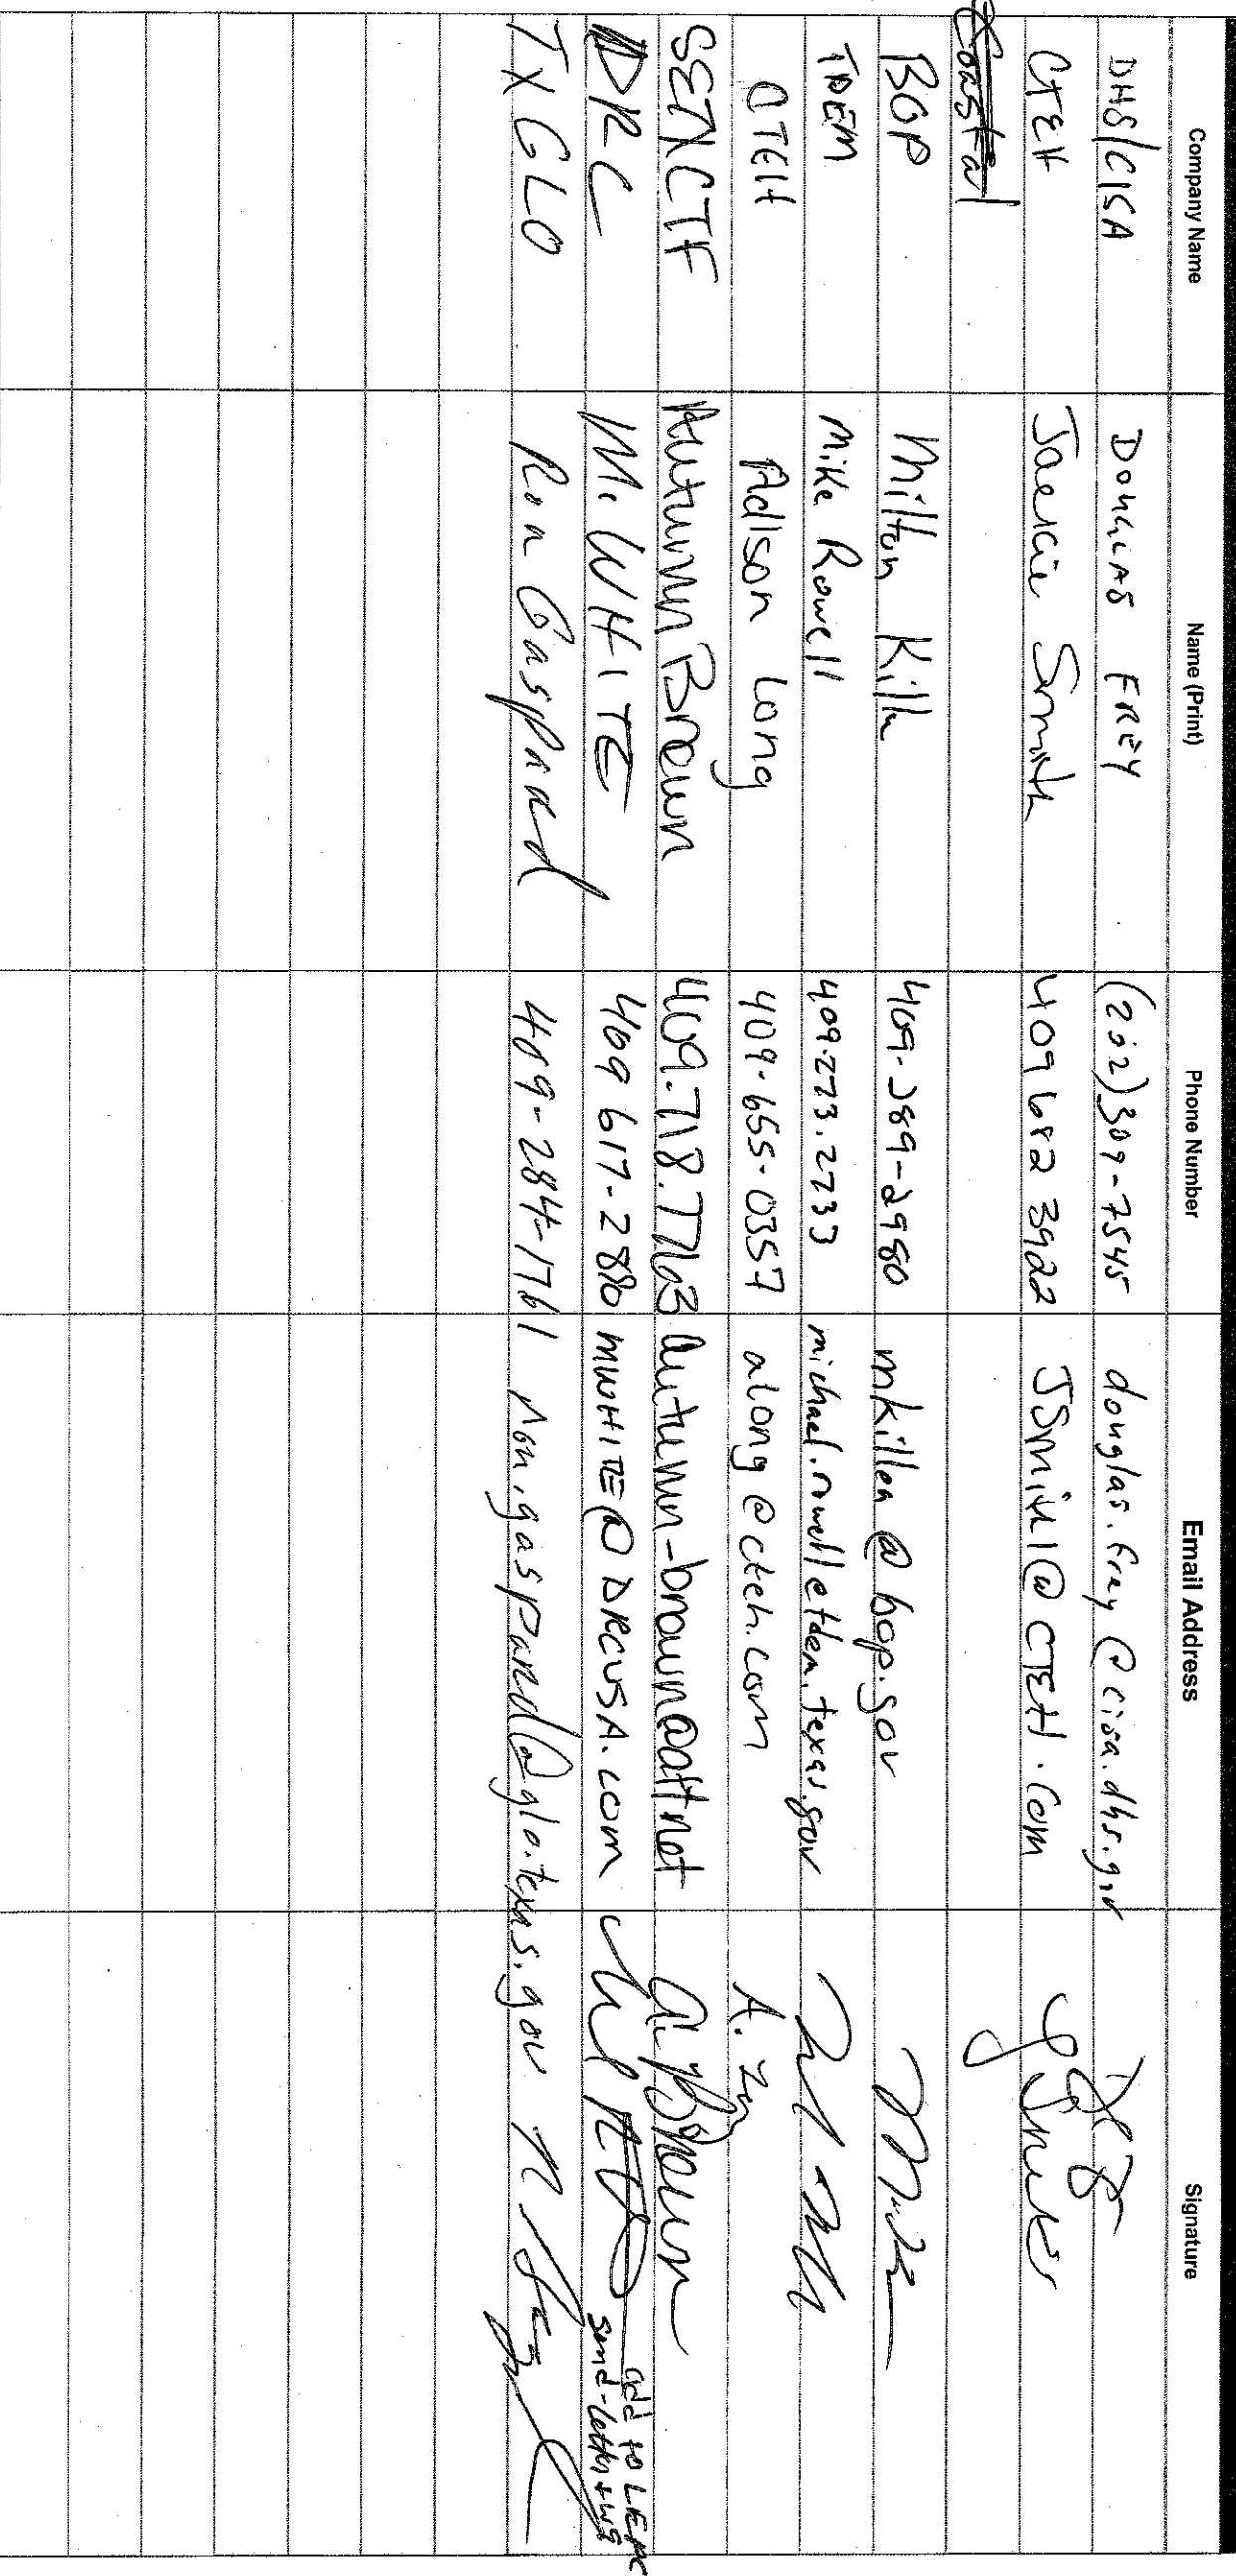 Company Name Name (Print) Phone Number Email Address Signature
DHS/CISA DOUGLAS FREY (202)309-7545 douglas.frey@cisa.dhs.gov
CTEH Jaercie Smith 409 682 3922 JSmith1@CTEH.com
Coastal
BOP Milton Killen 409-289-2980 mkillen@bop.gov
TDEM Mike Rowell 409.273.2733 michael.rowell@tdem.texas.gov
CTEH Adison Long 409-655-0357 along@cteh.com
SETXCTF Autumn Brown 409.718.7763 autumn-brown@att.net A. Brown
DRC M. WHITE 409 617-2880 MWHITE@DRCUSA.COM add to LEPC
send-letter + W9
TXGLO Ron Gaspard 409-284-1761 ron.gaspard@glo.texas.gov